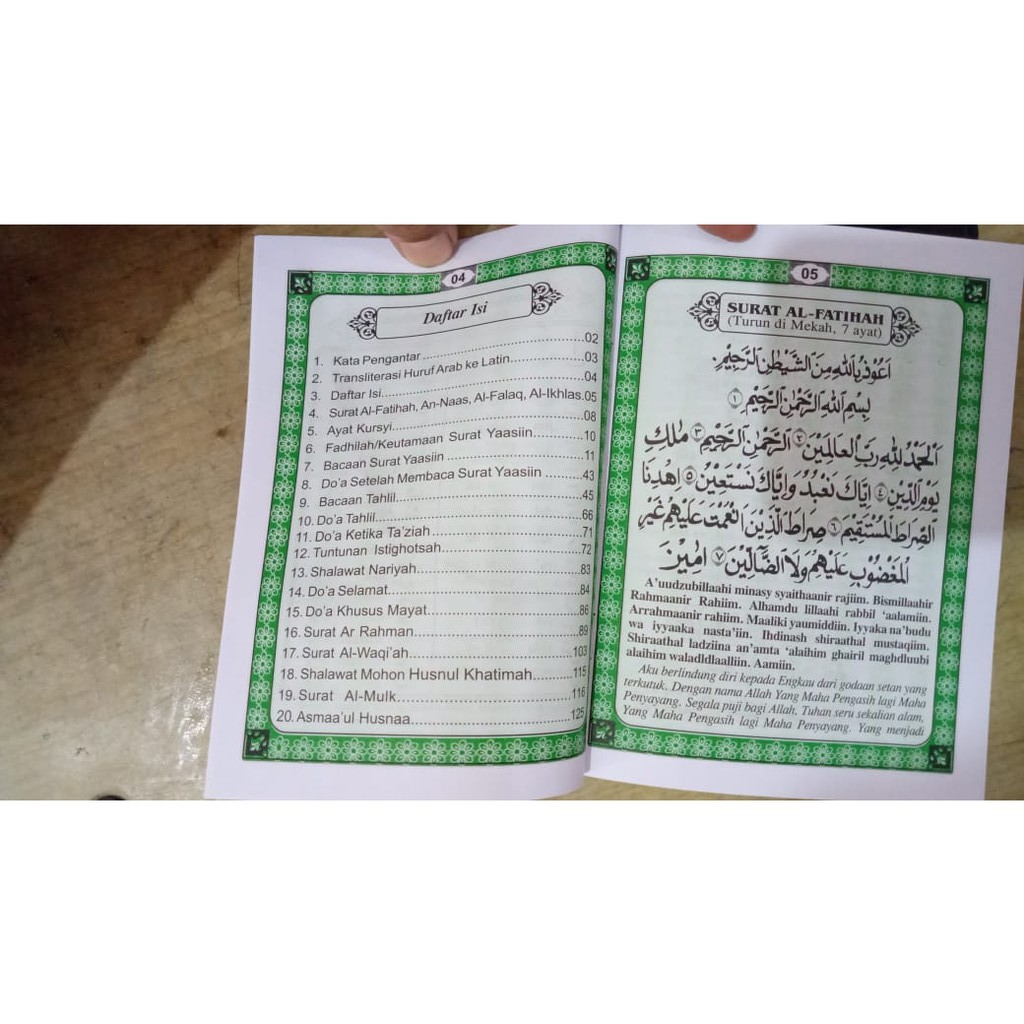 04
Daftar Isi
1. Kata Pengantar ..........02
2. Transliterasi Huruf Arab ke Latin..........03
3. Daftar Isi..........04
4. Surat Al-Fatihah, An-Naas, Al-Falaq, Al-Ikhlas.05
5. Ayat Kursyi..........08
6. Fadhilah/Keutamaan Surat Yaasiin..........10
7. Bacaan Surat Yaasiin ..........11
8. Do'a Setelah Membaca Surat Yaasiin ..........43
9. Bacaan Tahlil..........45
10. Do'a Tahlil..........66
11. Do'a Ketika Ta'ziah..........71
12. Tuntunan Istighotsah..........72
13. Shalawat Nariyah..........83
14. Do'a Selamat..........84
15. Do'a Khusus Mayat..........86
16. Surat Ar Rahman..........89
17. Surat Al-Waqi'ah..........103
18. Shalawat Mohon Husnul Khatimah..........115
19. Surat Al-Mulk..........116
20. Asmaa'ul Husnaa..........125
05
SURAT AL-FATIHAH
(Turun di Mekah, 7 ayat)
اَعُوْذُ بِاللهِ مِنَ الشَّيْطٰنِ الرَّجِيْمِ.
بِسْمِ اللهِ الرَّحْمٰنِ الرَّحِيْمِ ۝١
اَلْحَمْدُ لِلّٰهِ رَبِّ الْعَالَمِيْنَ ۝٢ اَلرَّحْمٰنِ الرَّحِيْمِ ۝٣ مٰلِكِ
يَوْمِ الدِّيْنِ ۝٤ اِيَّاكَ نَعْبُدُ وَاِيَّاكَ نَسْتَعِيْنُ ۝٥ اِهْدِنَا
الصِّرَاطَ الْمُسْتَقِيْمَ ۝٦ صِرَاطَ الَّذِيْنَ اَنْعَمْتَ عَلَيْهِمْ غَيْرِ
الْمَغْضُوْبِ عَلَيْهِمْ وَلَا الضَّآلِّيْنَ ۝٧ اٰمِيْنَ
A'uudzubillaahi minasy syaithaanir rajiim. Bismillaahir
Rahmaanir Rahiim. Alhamdu lillaahi rabbil 'aalamiin.
Arrahmaanir rahiim. Maaliki yaumiddiin. Iyyaka na'budu
wa iyyaaka nasta'iin. Ihdinash shiraathal mustaqiim.
Shiraathal ladziina an'amta 'alaihim ghairil maghdluubi
alaihim waladdlaalliin. Aamiin.
Aku berlindung diri kepada Engkau dari godaan setan yang
terkutuk. Dengan nama Allah Yang Maha Pengasih lagi Maha
Penyayang. Segala puji bagi Allah, Tuhan seru sekalian alam,
Yang Maha Pengasih lagi Maha Penyayang. Yang menjadi